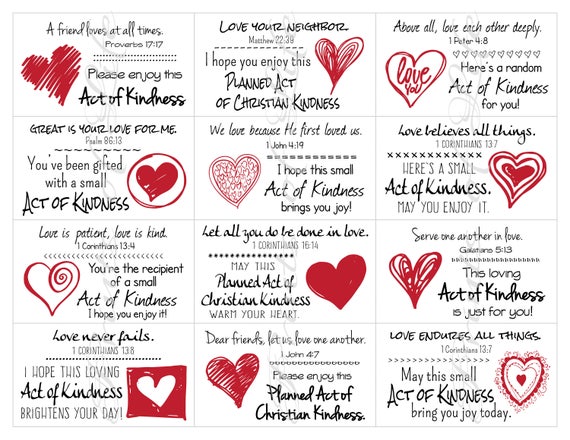 A friend loves at all times.
Proverbs 17:17
Please enjoy this
Act of Kindness
LOVE YOUR NEIGHBOR.
Matthew 22:39
I hope you enjoy this
PLANNED ACT
OF CHRISTIAN KINDNESS
Above all, love each other deeply.
1 Peter 4:8
love
You
Here's a random
Act of Kindness
for you!
GREAT IS YOUR LOVE FOR ME.
Psalm 86:13
You've been gifted
with a small
ACT OF KINDNESS
We love because He first loved us.
1 John 4:19
I hope this small
Act of Kindness
brings you joy!
Love believes all things.
1 CORINTHIANS 13:7
HERE'S A SMALL
ACT OF KINDNESS.
MAY YOU ENJOY IT.
Love is patient, love is kind.
1 Corinthians 13:4
You're the recipient
of a small
Act of Kindness
I hope you enjoy it!
Let all you do be done in love.
1 CORINTHIANS 16:14
MAY THIS
Planned Act of
Christian Kindness
WARM YOUR HEART.
Serve one another in love.
Galatians 5:13
This loving
Act of Kindness
is just for you!
Love never fails.
1 CORINTHIANS 13:8
I HOPE THIS LOVING
Act of Kindness
BRIGHTENS YOUR DAY!
Dear friends, let us love one another.
1 John 4:7
Please enjoy this
Planned Act of
Christian Kindness.
LOVE ENDURES ALL THINGS.
1 Corinthians 13:7
May this small
ACT OF KINDNESS
bring you joy today.